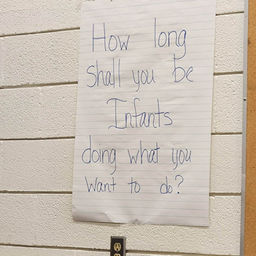 How long
Shall you be
Infants
doing what you
want to do?